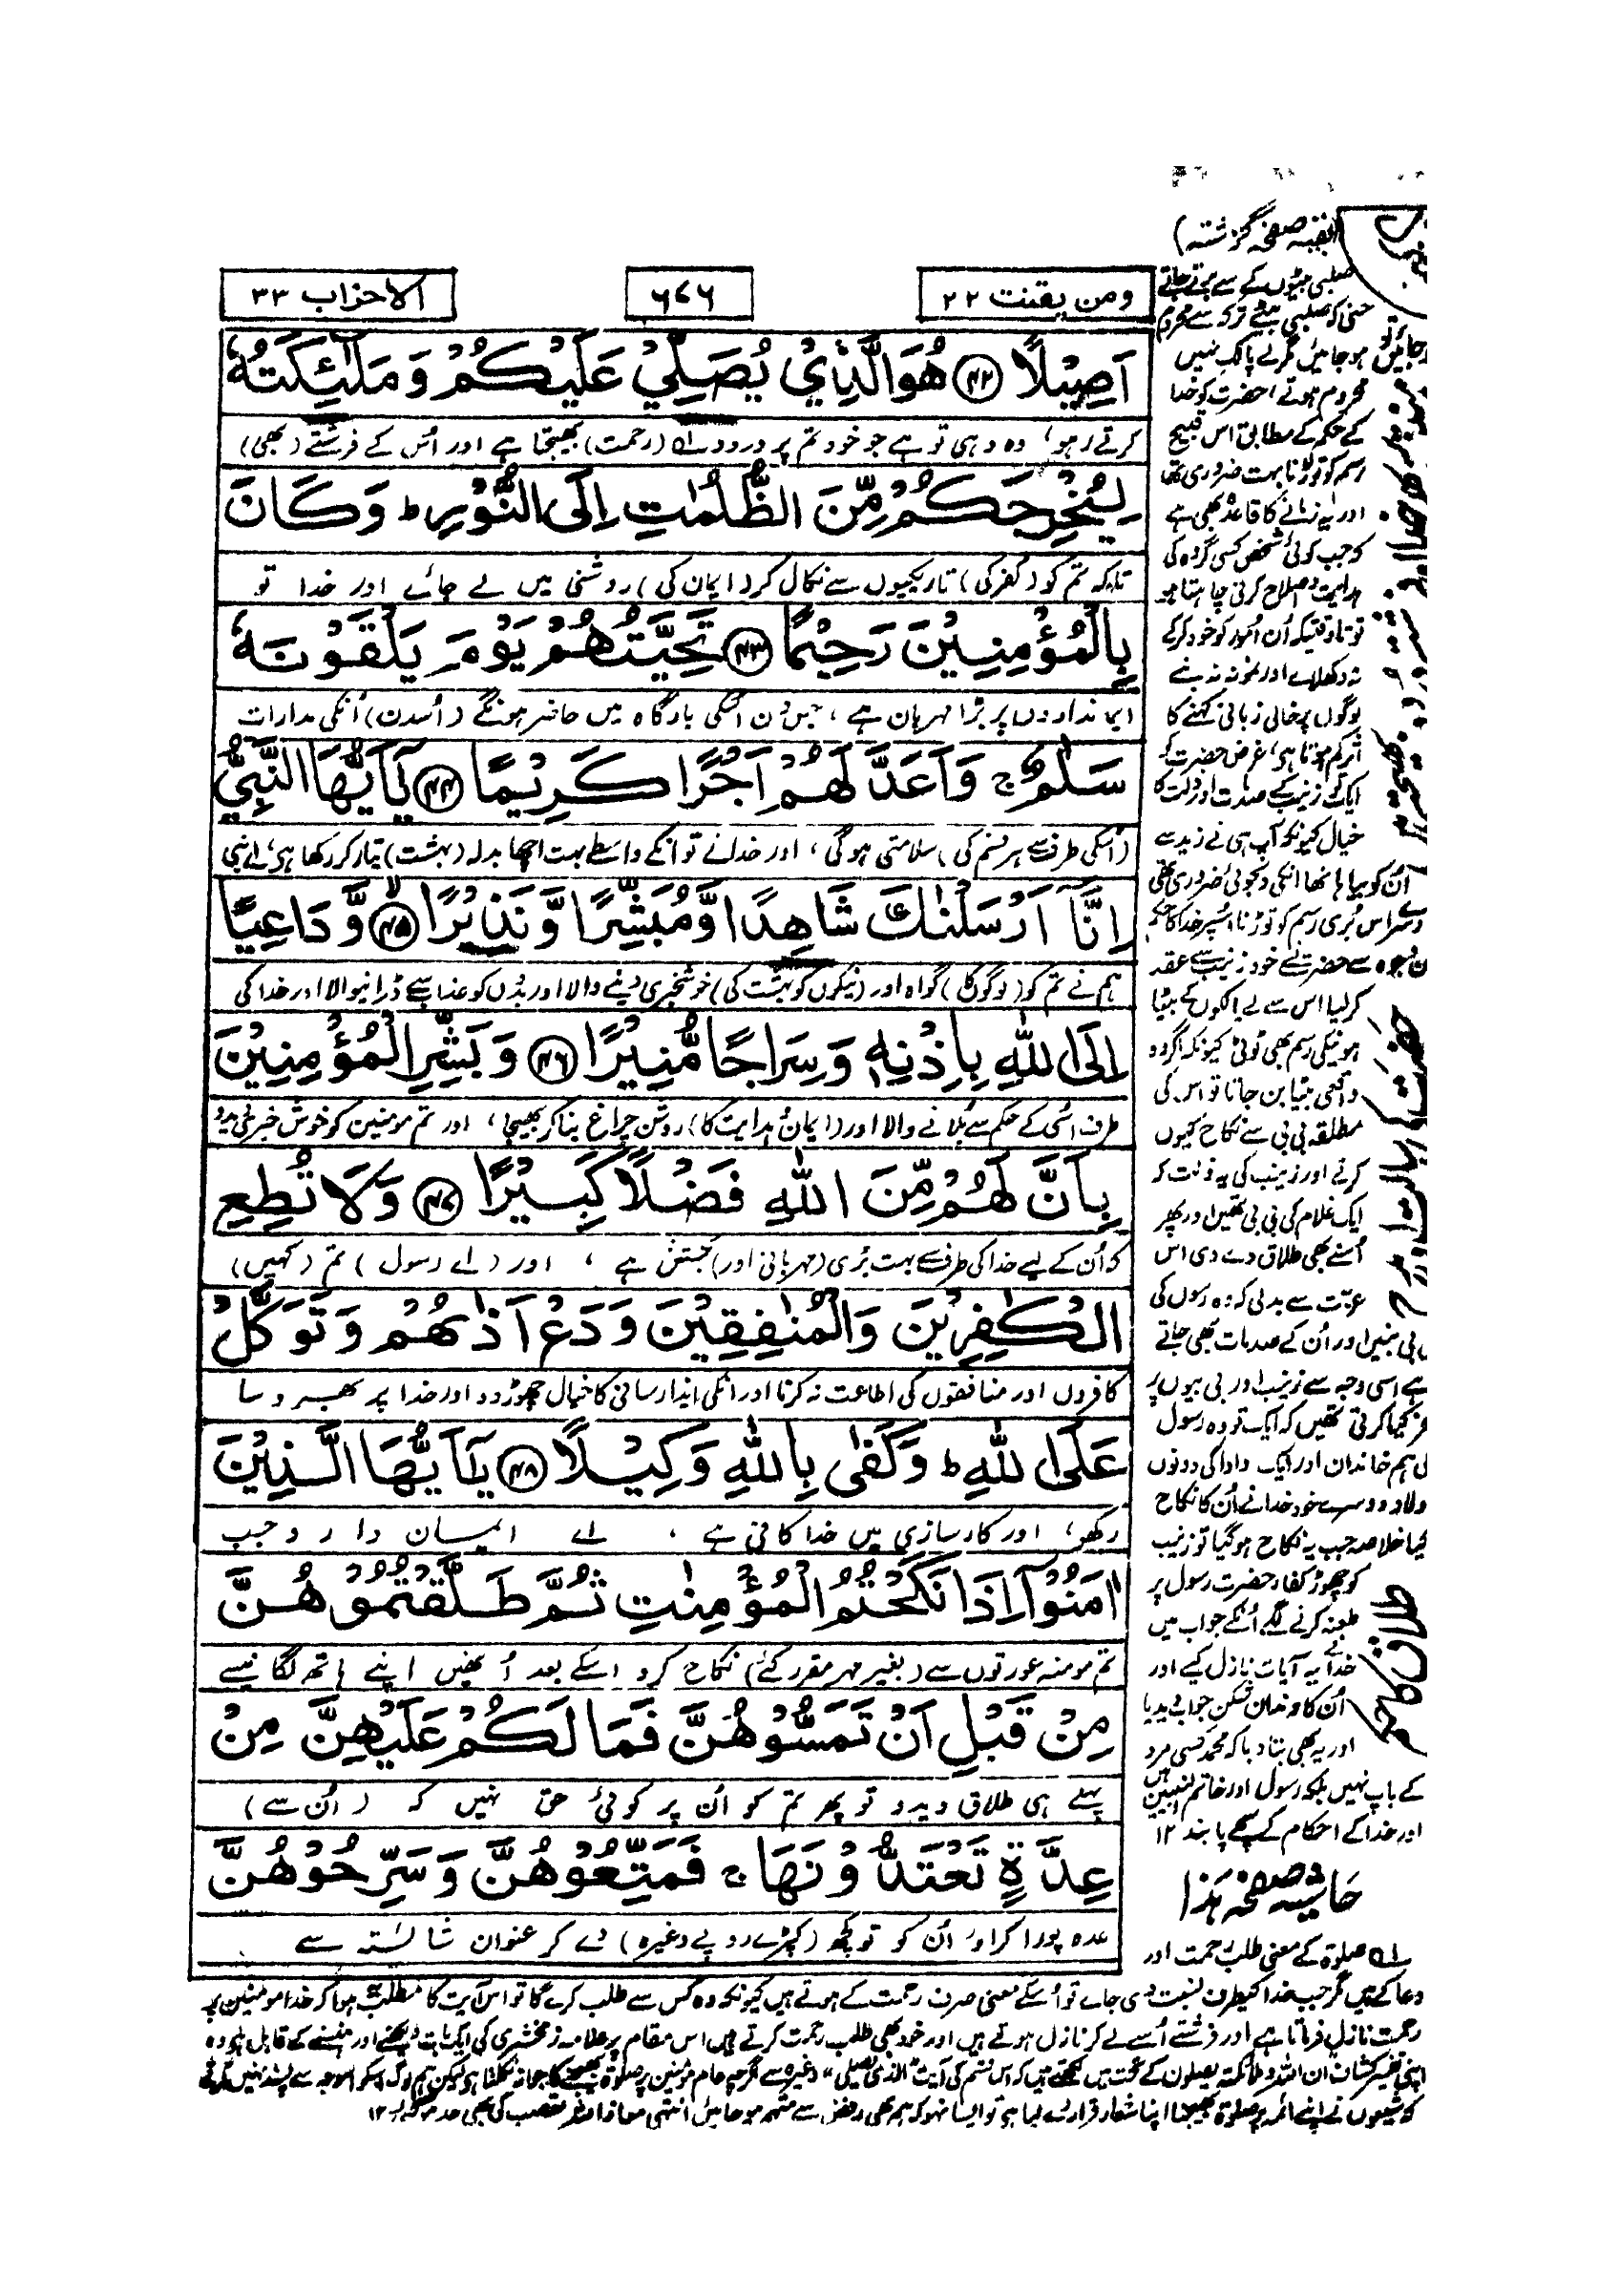 ومن یقنت ۲۲
۶۷۶
الاحزاب ۳۳
اَصِیۡلًا ﴿۴۲﴾ هُوَ الَّذِیۡ یُصَلِّیۡ عَلَیۡکُمۡ وَ مَلٰٓئِکَتُہٗ
کرتے رہو، وہ وہی تو ہے جو خود تم پر درود (رحمت) بھیجتا ہے اور اُس کے فرشتے (بھی)
لِیُخۡرِجَکُمۡ مِّنَ الظُّلُمٰتِ اِلَی النُّوۡرِ ؕ وَ کَانَ
تاکہ تم کو (کفر کی) تاریکیوں سے نکال کر (ایمان کی) روشنی میں لے جائے اور خدا تو
بِالۡمُؤۡمِنِیۡنَ رَحِیۡمًا ﴿۴۳﴾ تَحِیَّتُهُمۡ یَوۡمَ یَلۡقَوۡنَہٗ
ایمانداروں پر بڑا مہربان ہے، جس دن اسکی بارگاہ میں حاضر ہونگے (اُسدن) اُنکی مدارات
سَلٰمٌ ۚ وَ اَعَدَّ لَهُمۡ اَجۡرًا کَرِیۡمًا ﴿۴۴﴾ یٰۤاَیُّهَا النَّبِیُّ
(اُسکی طرف سے ہر قسم کی) سلامتی ہوگی، اور خدا نے تو انکے واسطے بہت اچھا بدلہ (بہشت) تیار کر رکھا ہی، اے نبی
اِنَّاۤ اَرۡسَلۡنٰکَ شَاهِدًا وَّ مُبَشِّرًا وَّ نَذِیۡرًا ﴿۴۵﴾ وَّ دَاعِیًا
ہم نے تم کو (لوگوں کا) گواہ اور (نیکوں کو بہشت کی) خوشخبری دینے والا اور بدوں کو عذاب سے ڈرانیوالا اور خدا کی
اِلَی اللّٰهِ بِاِذۡنِهٖ وَ سِرَاجًا مُّنِیۡرًا ﴿۴۶﴾ وَ بَشِّرِ الۡمُؤۡمِنِیۡنَ
طرف اُسی کے حکم سے بُلانے والا اور (ایمان و ہدایت کا) روشن چراغ بنا کر بھیجا، اور تم مومنین کو خوش خبری دیدو
بِاَنَّ لَهُمۡ مِّنَ اللّٰهِ فَضۡلًا کَبِیۡرًا ﴿۴۷﴾ وَ لَا تُطِعِ
کہ اُن کے لیے خدا کی طرف سے بہت بڑی (مہربانی اور) بخشش ہے، اور (اے رسول) تم (کہیں)
الۡکٰفِرِیۡنَ وَ الۡمُنٰفِقِیۡنَ وَ دَعۡ اَذٰىهُمۡ وَ تَوَکَّلۡ
کافروں اور منافقوں کی اطاعت نہ کرنا اور انکی ایذا رسانی کا خیال چھوڑ دو اور خدا پر بھروسا
عَلَی اللّٰهِ ؕ وَ کَفٰی بِاللّٰهِ وَکِیۡلًا ﴿۴۸﴾ یٰۤاَیُّهَا الَّذِیۡنَ
رکھو، اور کارسازی میں خدا کافی ہے، اے ایماندارو جب
اٰمَنُوۡۤا اِذَا نَکَحۡتُمُ الۡمُؤۡمِنٰتِ ثُمَّ طَلَّقۡتُمُوۡهُنَّ
تم مومنہ عورتوں سے (بغیر مہر مقرر کئے) نکاح کرو اسکے بعد اُنھیں اپنے ہاتھ لگانے سے
مِنۡ قَبۡلِ اَنۡ تَمَسُّوۡهُنَّ فَمَا لَکُمۡ عَلَیۡهِنَّ مِنۡ
پہلے ہی طلاق دیدو تو پھر تم کو اُن پر کوئی حق نہیں کہ (اُن سے)
عِدَّةٍ تَعۡتَدُّوۡنَهَا ۚ فَمَتِّعُوۡهُنَّ وَ سَرِّحُوۡهُنَّ
عدہ پورا کراؤ اُن کو تو کچھ (کپڑے روپے وغیرہ) دے کر عنوان شائستہ سے
(بقیہ صفحہ گزشتہ)
صلبی بیٹوں کے سے برتے جاتے
حتی کہ صلبی بیٹے ترکہ سے محروم
ہو جائیں تو ہو جائیں مگر لے پالک نہیں
محروم ہوتے حضرت کو خدا
کے حکم کے مطابق اس قبیح
رسم کو توڑنا بہت ضروری تھا
اور یہ زمانے کا قاعدہ بھی ہے
کہ جب کوئی شخص کسی گروہ کی
ہدایت و اصلاح کرنی چاہتا ہو
تو تاوقتیکہ اُن امور کو خود کر کے
نہ دکھلاے اور نمونہ نہ بنے
لوگوں پر خالی زبانی کہنے کا
اثر کم ہوتا ہی، غرض حضرت کو
ایک تو زینب کے صدمات اور ذلت کا
خیال کیونکہ آپ ہی نے زید سے
اُن کو بیاہا تھا انکی دلجوئی ضروری تھی
دوسرا اس بُری رسم کو توڑنا اسپر خدا کا حکم
وجوہ سے حضرت نے خود زینب سے عقد
کر لیا اس سے لے پالکوں کے بیٹا
ہونیکی رسم بھی ٹوٹی کیونکہ اگر وہ
واقعی بیٹا بن جاتا تو اس کی
مطلقہ بی بی سے نکاح کیوں
کرتے اور زینب کی یہ ذلت کہ
ایک غلام کی بی بی تھیں اور پھر
اُسنے بھی طلاق دے دی اس
عزت سے بدلی کہ وہ رسول کی
بی بی بنیں اور اُن کے صدمات بھی جاتے
رہے اسی وجہ سے زینب اور بی بیوں پر
فخر کیا کرتی تھیں کہ ایک تو وہ رسول
کی ہم خاندان اور ایک دادا کی دونوں
اولاد دوسرے خود خدا نے اُن کا نکاح
کیا خلاصہ جب یہ نکاح ہو گیا تو زینب
کو چھوڑ کفار حضرت رسول پر
طعنہ کرنے لگے اُنکے جواب میں
خدا نے یہ آیات نازل کیے اور
اُن کا دندان شکن جواب دیدیا
اور یہ بھی بتا دیا کہ محمد کسی مرد
کے باپ نہیں بلکہ رسول اور خاتم النبیین ہیں
اور خدا کے احکام کے سچے پابند ۱۲
طلاق کا حکم
حاشیہ صفحہ ہذا
لہ صلوٰۃ کے معنی طلب رحمت اور
دعا کے ہیں مگر جب خدا کیطرف نسبت دی جاے تو اُسکے معنی صرف رحمت کے ہوتے ہیں کیونکہ وہ کس سے طلب کرے گا تو اس آیت کا مطلب یہ ہوا کہ خدا مومنین پر
رحمت نازل فرماتا ہے اور فرشتے اُسے لے کر نازل ہوتے ہیں اور خود بھی طلب رحمت کرتے ہیں اس مقام پر علامہ زمخشری کی ایک بات دیکھنے اور ہنسنے کے قابل ہے وہ
اپنی تفسیر کشاف ان اللہ و ملائکتہ یصلون کے تحت میں لکھتے ہیں کہ اس قسم کی آیت "ہو الذی یصلی" وغیرہ سے اگرچہ عام مومنین پر صلوٰۃ بھیجنے کا جواز نکلتا ہی لیکن ہم لوگ اسکو اسوجہ سے پسند نہیں کرتے
کہ شیعوں نے اپنے ائمہ پر صلوٰۃ بھیجنا اپنا شعار قرار دے لیا ہی تو ایسا نہو کہ ہم بھی رفض سے متہم ہو جائیں انتہی معاذ اللہ تعصب کی بھی حد ہو گئی ۱۲